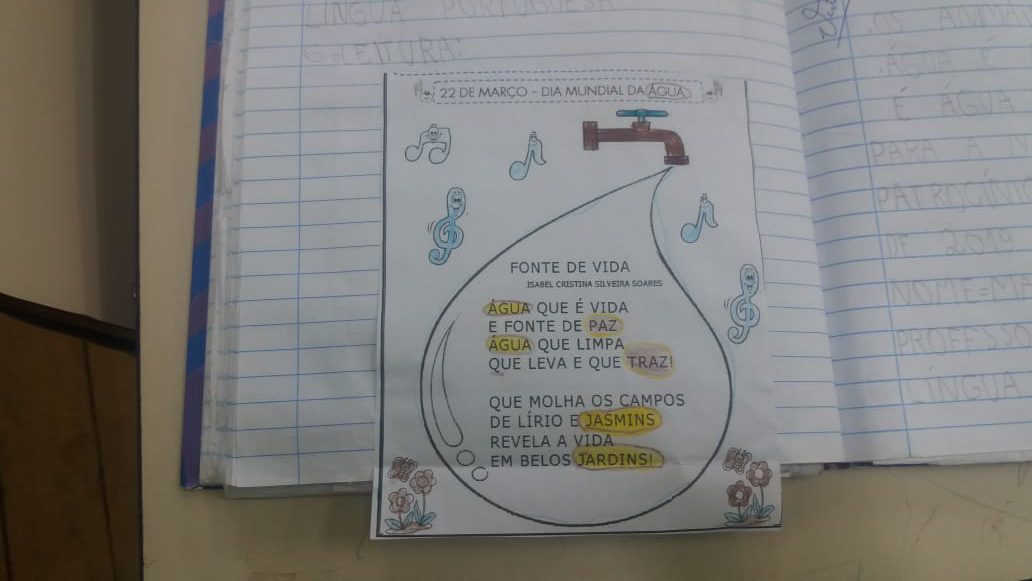 LÍNGUA PORTUGUESA
6=LEITURA:
22 DE MARÇO - DIA MUNDIAL DA ÁGUA
FONTE DE VIDA
ISABEL CRISTINA SILVEIRA SOARES
ÁGUA QUE É VIDA
E FONTE DE PAZ
ÁGUA QUE LIMPA
QUE LEVA E QUE TRAZ!
QUE MOLHA OS CAMPOS
DE LÍRIO E JASMINS
REVELA A VIDA
EM BELOS JARDINS!
.OS ANIMA
.ÁGUA É
É ÁGUA
PARA A
PATROCÍNI
DE 2019
NOME=MA
PROFESSO
LÍNGUA